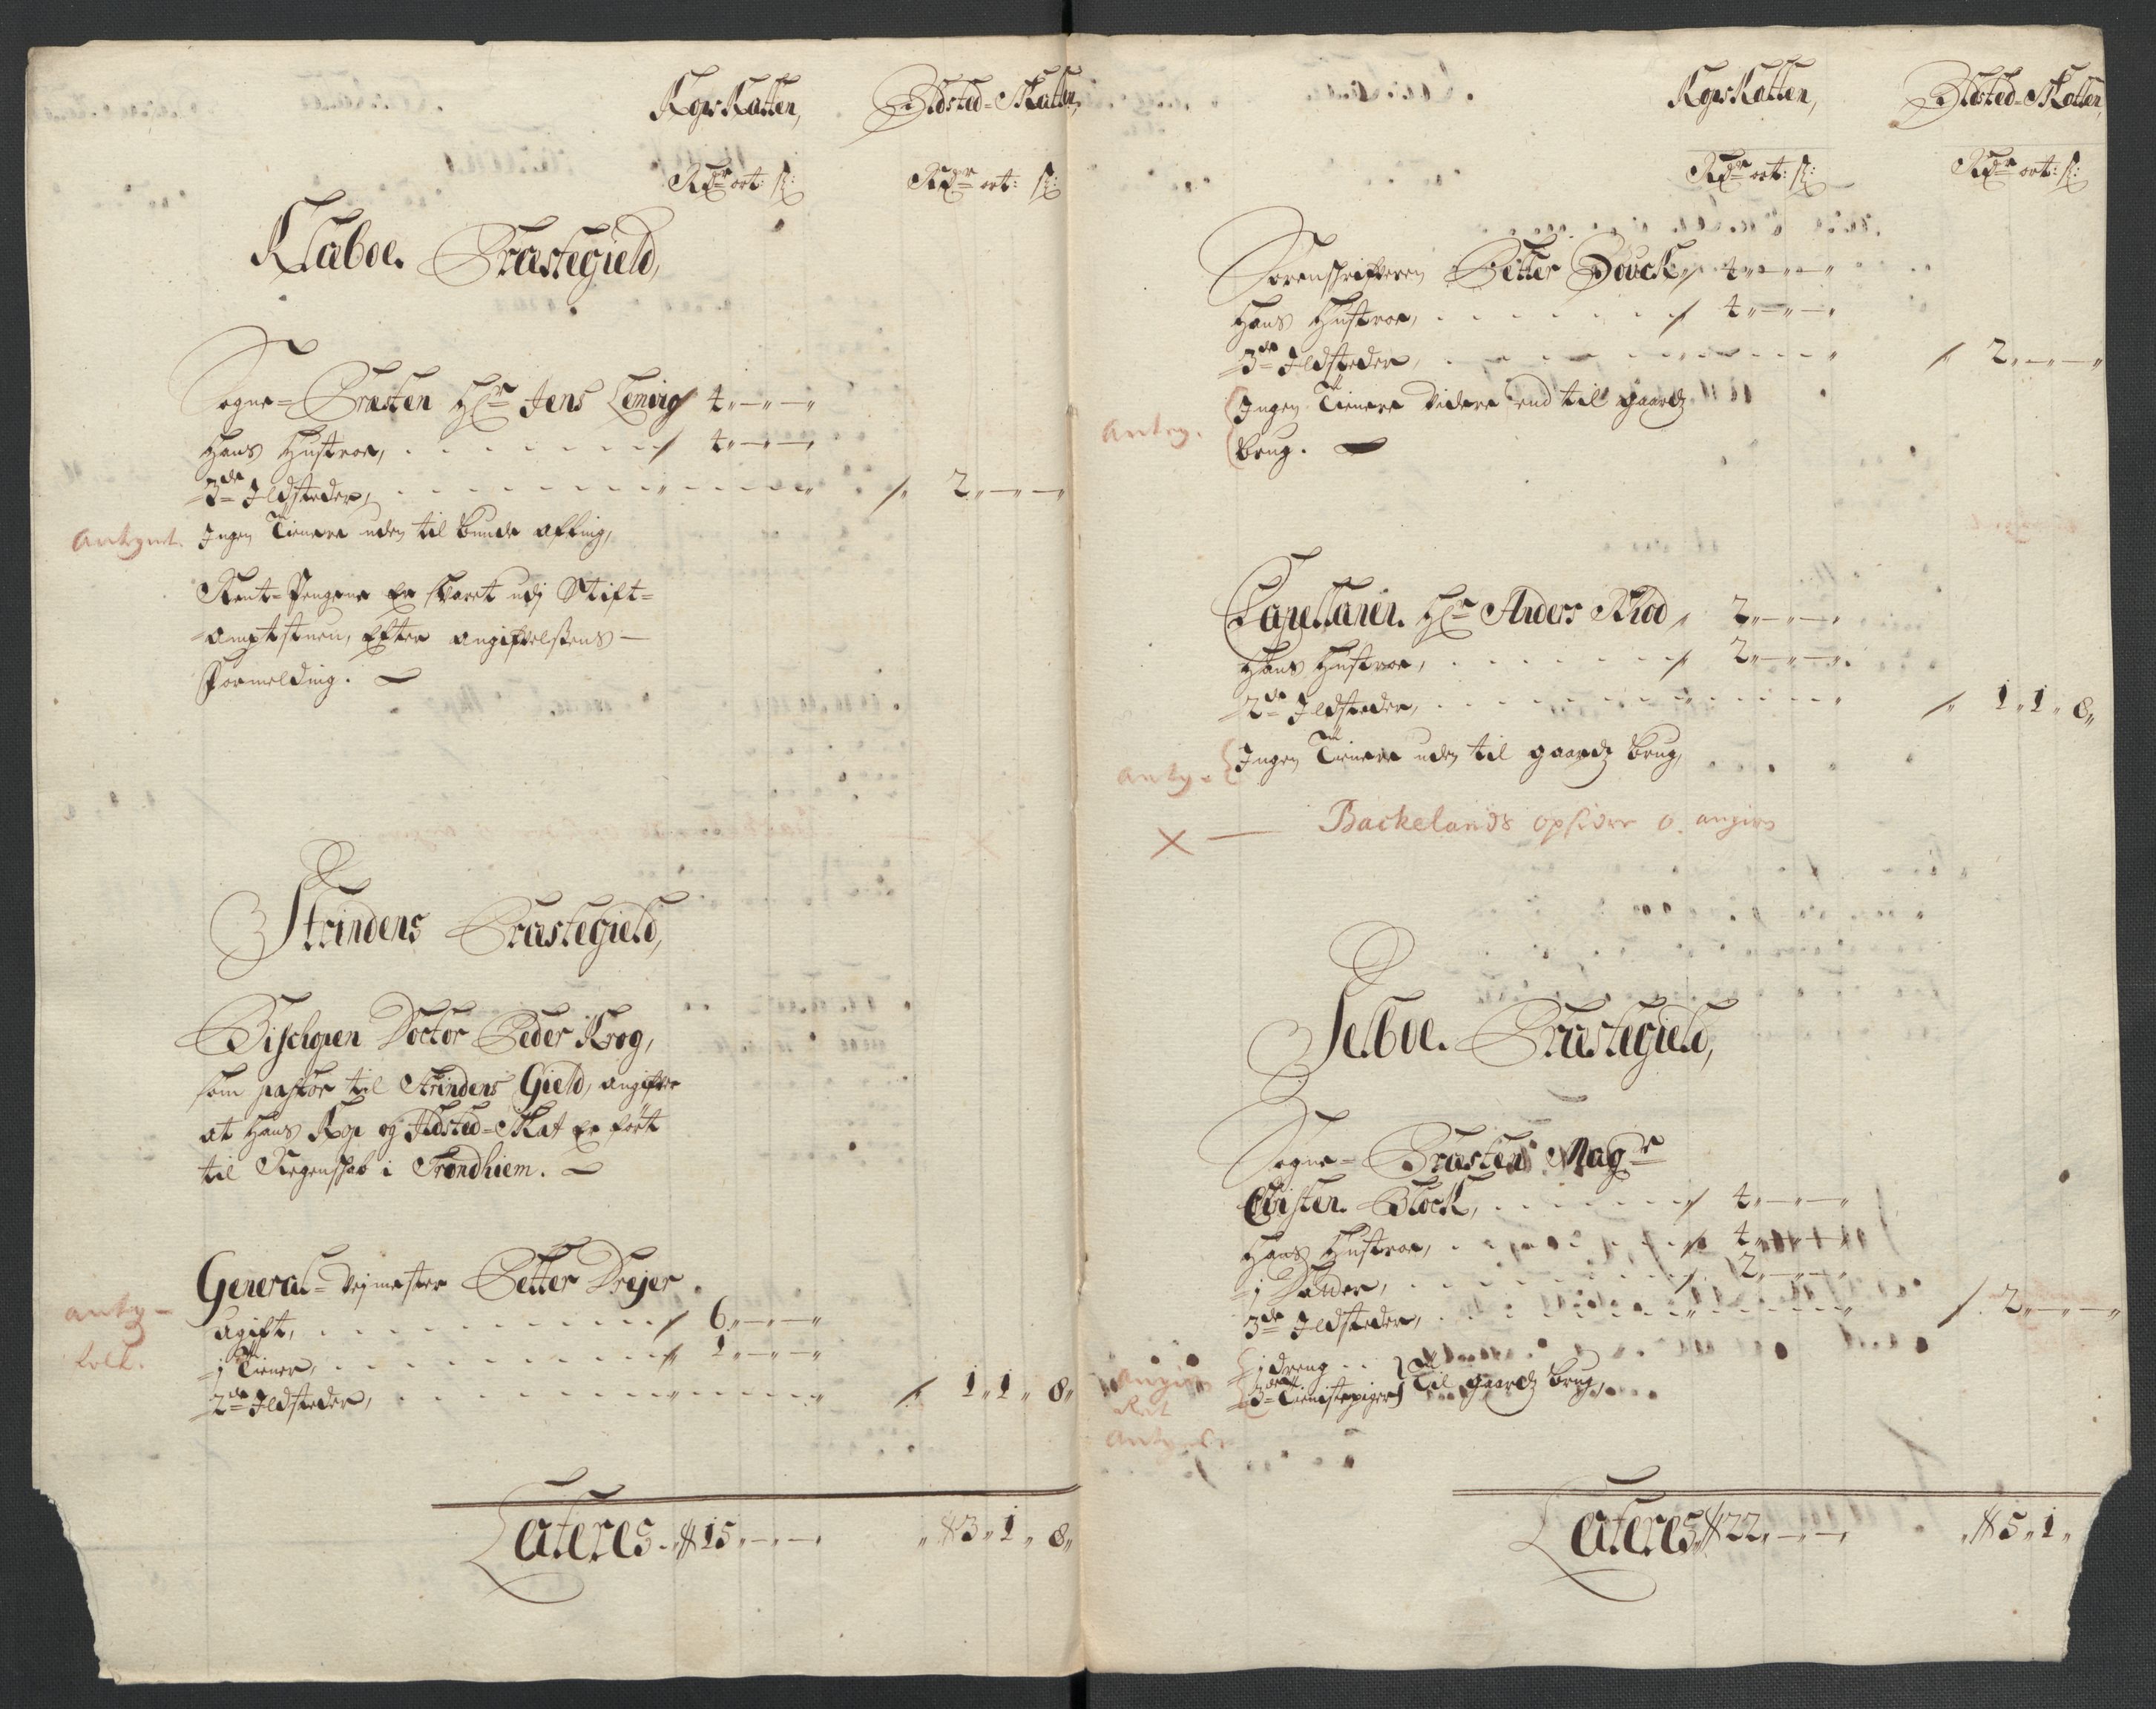 KopsKatten, Ildsted-Skatten,
Rdr ort: s: Rdr ort: s:
Klæboe Præstegield,
Sogne-Præsten Hr Jens Lemvig 4 „ — „ — „
Hans Hustroe, 4 „ — „ — „
3de Ildsteder, 2 „ — „ — „
Ingen Tienere uden til bunde afling,
Rente-Pengene er svaret udj Stift-
amptstuen, Efter angifvelsens
Formelding.
Strindens Præstegield,
Bischopen Doctor Peder Krog,
som pastor til Strindens Gield, angifver
at hans Kop og Ildsted-Skat er ført
til Regenskab i Trondhiem.
General-Vejmester Petter Drejer
ugift, 6 „ — „ — „
1 Tiener, 1 „ — „ — „
2de Ildsteder, 1 „ 1 „ 8 „
Lateris 15 „ — „ — „ 3 „ 1 „ 8 „
KopsKatten, Ildsted-Skatten,
Rdr ort: s: Rdr ort: s:
Sorenskrifveren Petter Douck 4 „ — „ — „
Hans Hustroe, 4 „ — „ — „
3de Ildsteder, 2 „ — „ — „
Ingen Tienere videre end til gaardz
brug.
Capellanen Hr Anders Kiod 2 „ — „ — „
Hans Hustroe, 2 „ — „ — „
2de Ildsteder, 1 „ 1 „ 8 „
Ingen Tienere uden til gaardz brug,
X — Backelands opsidder o. angives
Selboe Præstegield,
Sogne-Præsten Magr
Christen Block, 4 „ — „ — „
Hans Hustroe, 4 „ — „ — „
1 Daater, 2 „ — „ — „
3de Ildsteder, 2 „ — „ — „
1 dreng
3de Tienistepiger Til gaardz brug,
Lateris 22 „ — „ — „ 5 „ 1 „